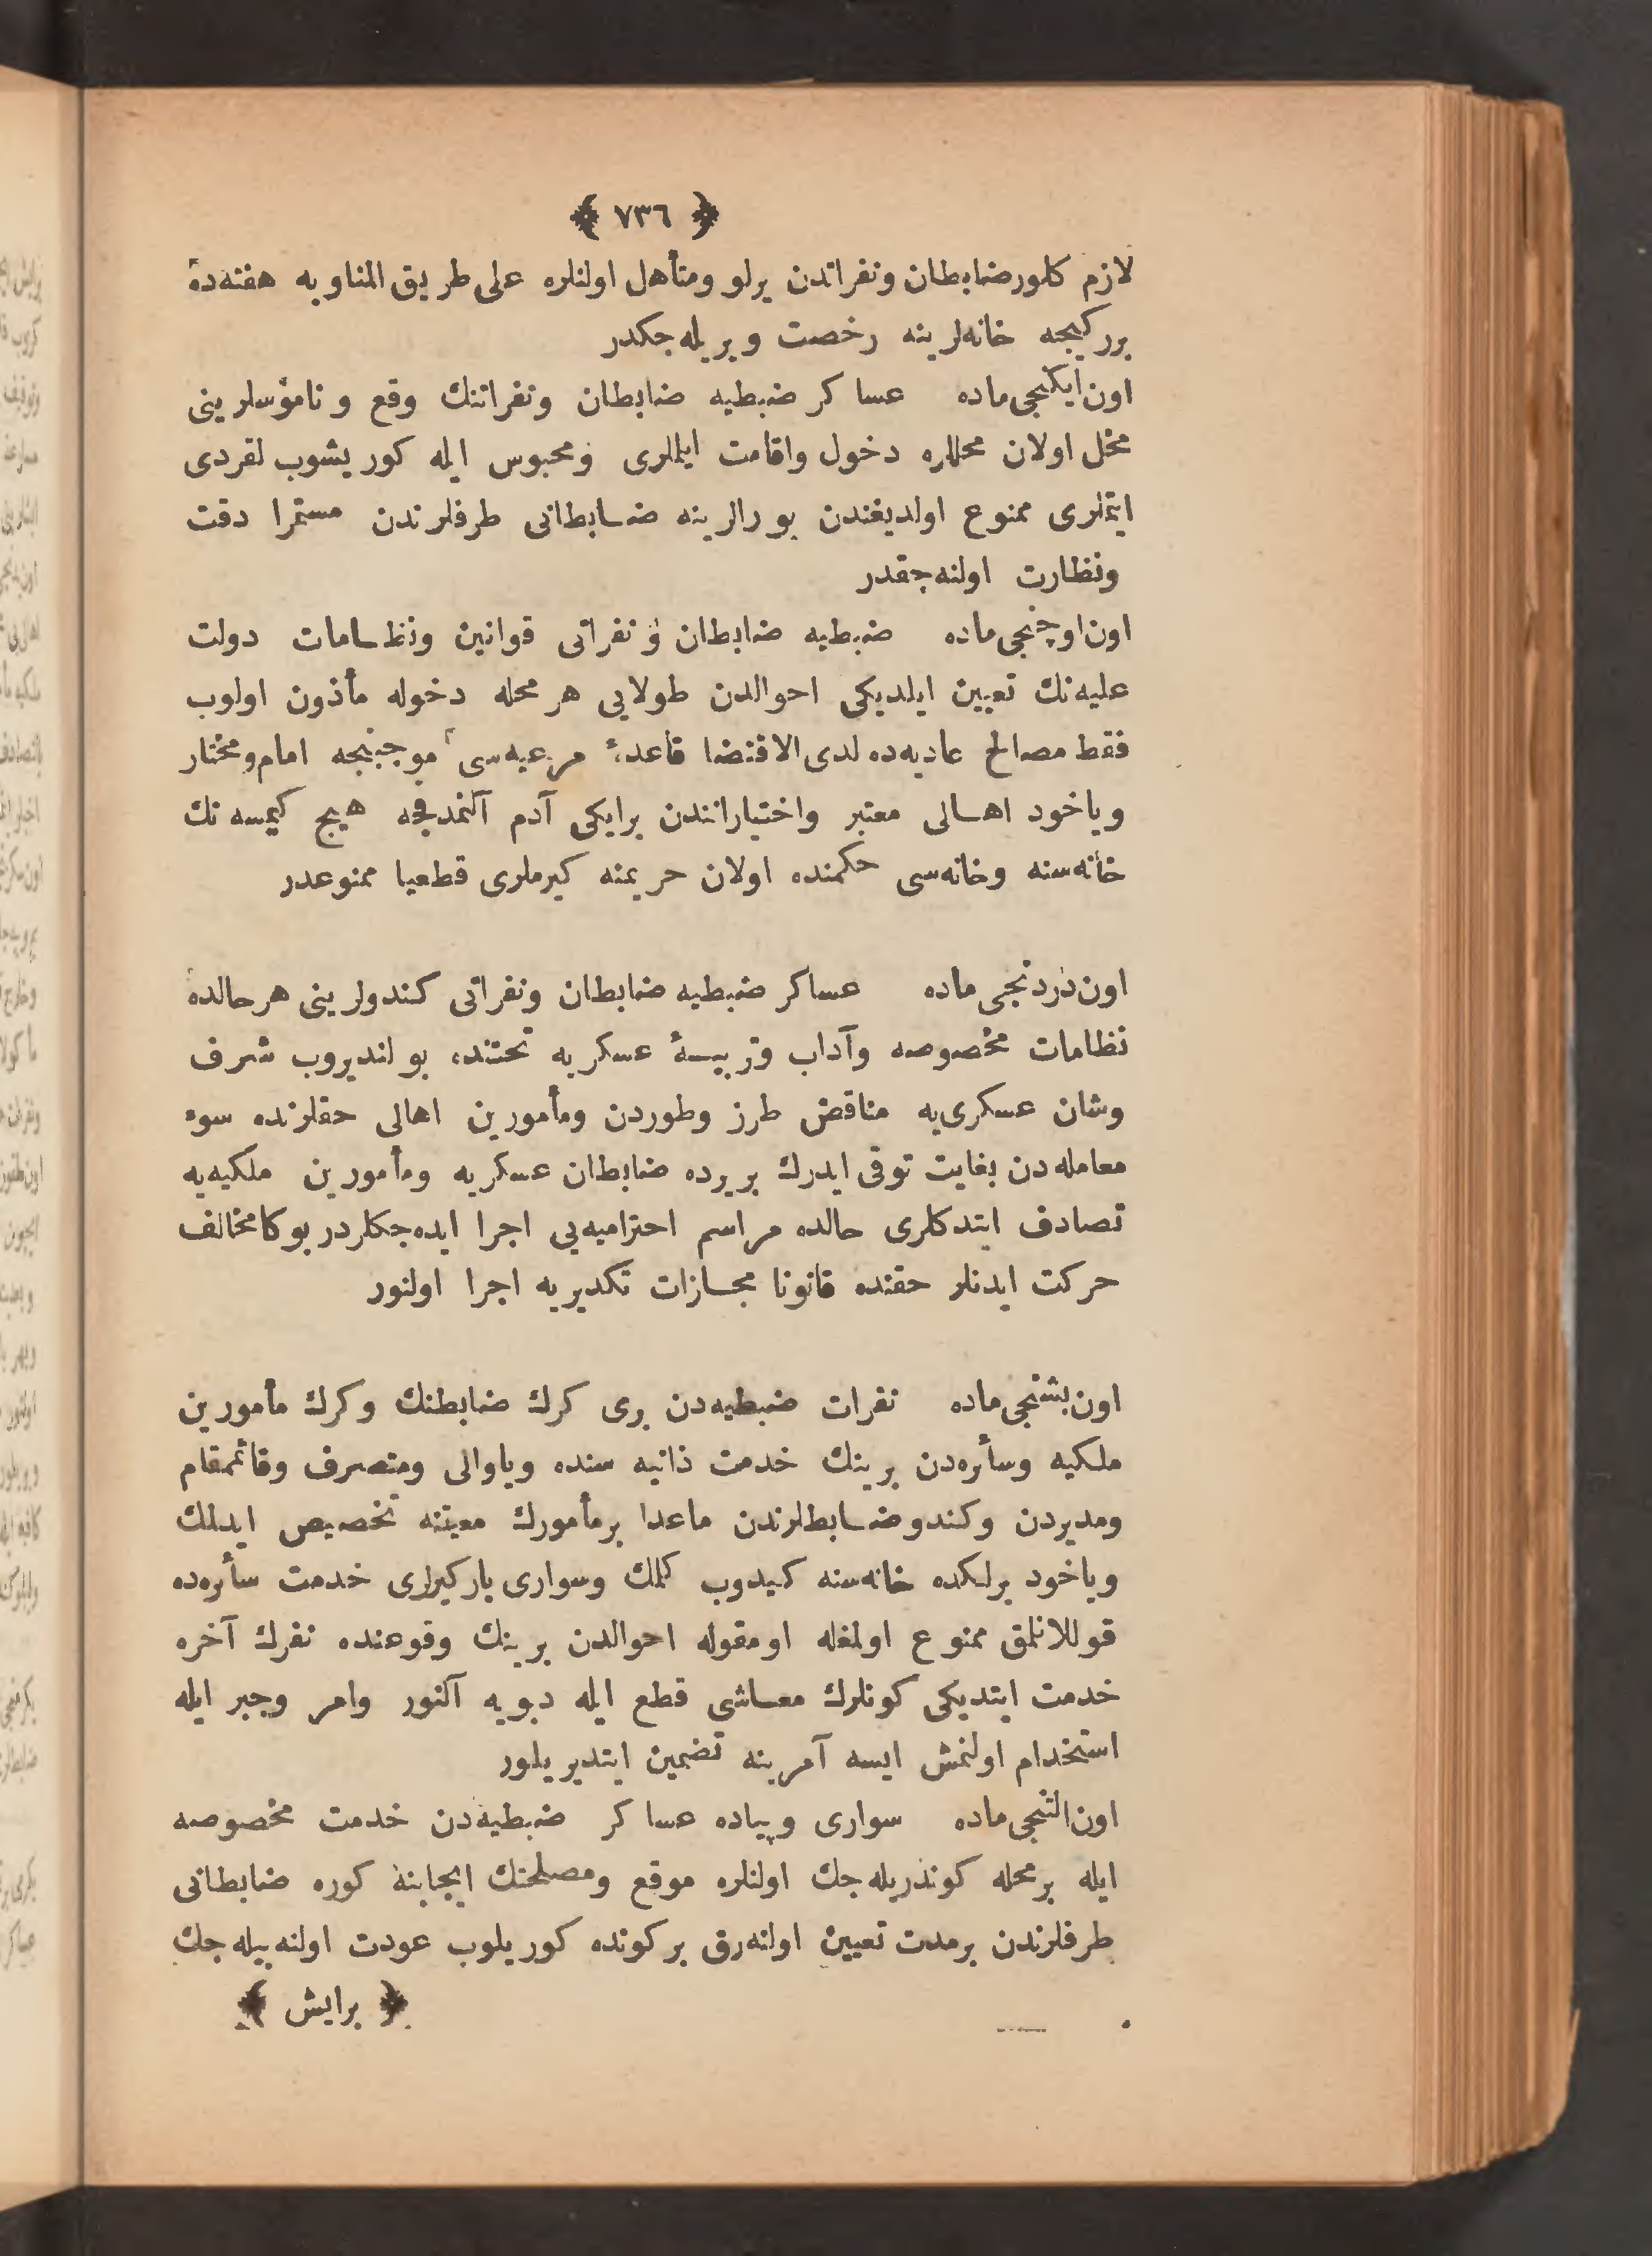 ﴿ ٧٣٦ ﴾
لازم كلور ضابطان ونفراتدن يرلو ومتأهل اولنلره على طريق المناوبه هفته‌ده
برر كيجه خانه‌لرينه رخصت ويريله‌جكدر
اون ايكنجى ماده عساكر ضبطيه ضابطان ونفراتنك وقع و ناموسلرينى
مخل اولان محللره دخول واقامت ايللرى ومحبوس ايله كوريشوب لقردى
ايتملرى ممنوع اولديغندن بورالرينه ضابطانى طرفلرندن مستمرا دقت
ونظارت اولنه‌جقدر
اون اوچنجى ماده ضبطيه ضابطان و نفراتى قوانين ونظامات دولت
عليه‌نك تعيين ايلديكى احوالدن طولايى هر محله دخوله مأذون اولوب
فقط مصالح عاديه‌ده لدى الاقتضا قاعدهٔ مرعيه‌سى موجبنجه امام ومختار
وياخود اهالى معتبر واختيارانندن برايكى آدم آلنمدقجه هيچ كيمسه‌نك
خانه‌سنه وخانه‌سى حكمنده اولان حريمنه كيرملرى قطعيا ممنوعدر
اون دردنجى ماده عساكر ضبطيه ضابطان ونفراتى كندولرينى هر حالده
نظامات مخصوصه وآداب وتربيهٔ عسكريه تحتنده بولنديروب شرف
وشان عسكرى‌يه مناقض طرز وطوردن ومأمورين اهالى حقلرنده سوء
معامله‌دن بغايت توقى ايدرك بريرده ضابطان عسكريه ومأمورين ملكيه‌يه
تصادف ايتدكلرى حالده مراسم احتراميه‌يى اجرا ايده‌جكلردر بوكا مخالف
حركت ايدنلر حقنده قانونا مجازات تكديريه اجرا اولنور
اون بشنجى ماده نفرات ضبطيه‌دن برى كرك ضابطنك وكرك مأمورين
ملكيه وسائره‌دن برينك خدمت ذاتيه سنده وياوالى ومتصرف وقائممقام
ومديردن وكندو ضابطلرندن ماعدا برمأمورك معيتنه تخصيص ايدلمك
وياخود برلكده خانه‌سنه كيدوب كلمك وسوارى باركيرلرى خدمت سائره‌ده
قوللانلمق ممنوع اولمغله اومقوله احوالدن برينك وقوعنده نفرك آخره
خدمت ايتديكى كونلرك معاشى قطع ايله دبويه آلنور وامر وجبر ايله
استخدام اولنمش ايسه آمرينه تضمين ايتديريلور
اون التنجى ماده سوارى وپياده عساكر ضبطيه‌دن خدمت مخصوصه
ايله برمحله كوندريله‌جك اولنلره موقع ومصلحتك ايجابنه كوره ضابطانى
طرفلرندن برمدت تعيين اولنه‌رق بركونده كوريلوب عودت اولنه‌بيله‌جك
﴿ برايش ﴾